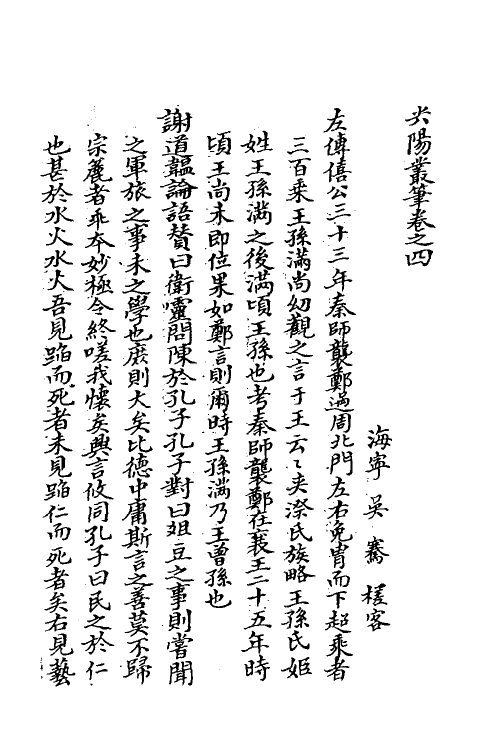 尖陽叢筆卷之四
海寧 吳 騫 槎客
左傳僖公三十三年秦師襲鄭過周北門左右免胄而下超乘者
三百乘王孫滿尚幼觀之言于王云〻夾漈氏族略王孫氏姬
姓王孫滿之後滿頃王孫也考秦師襲鄭在襄王二十五年時
頃王尚未即位果如鄭言則爾時王孫滿乃王曾孫也
謝道韞論語贊曰衛靈問陳於孔子孔子對曰俎豆之事則嘗聞
之軍旅之事未之學也庶則大矣比德中庸斯言之善莫不歸
宗麄者乖本妙極令終嗟我懷矣興言攸同孔子曰民之於仁
也甚於水火水火吾見蹈而死者未見蹈仁而死者矣右見藝